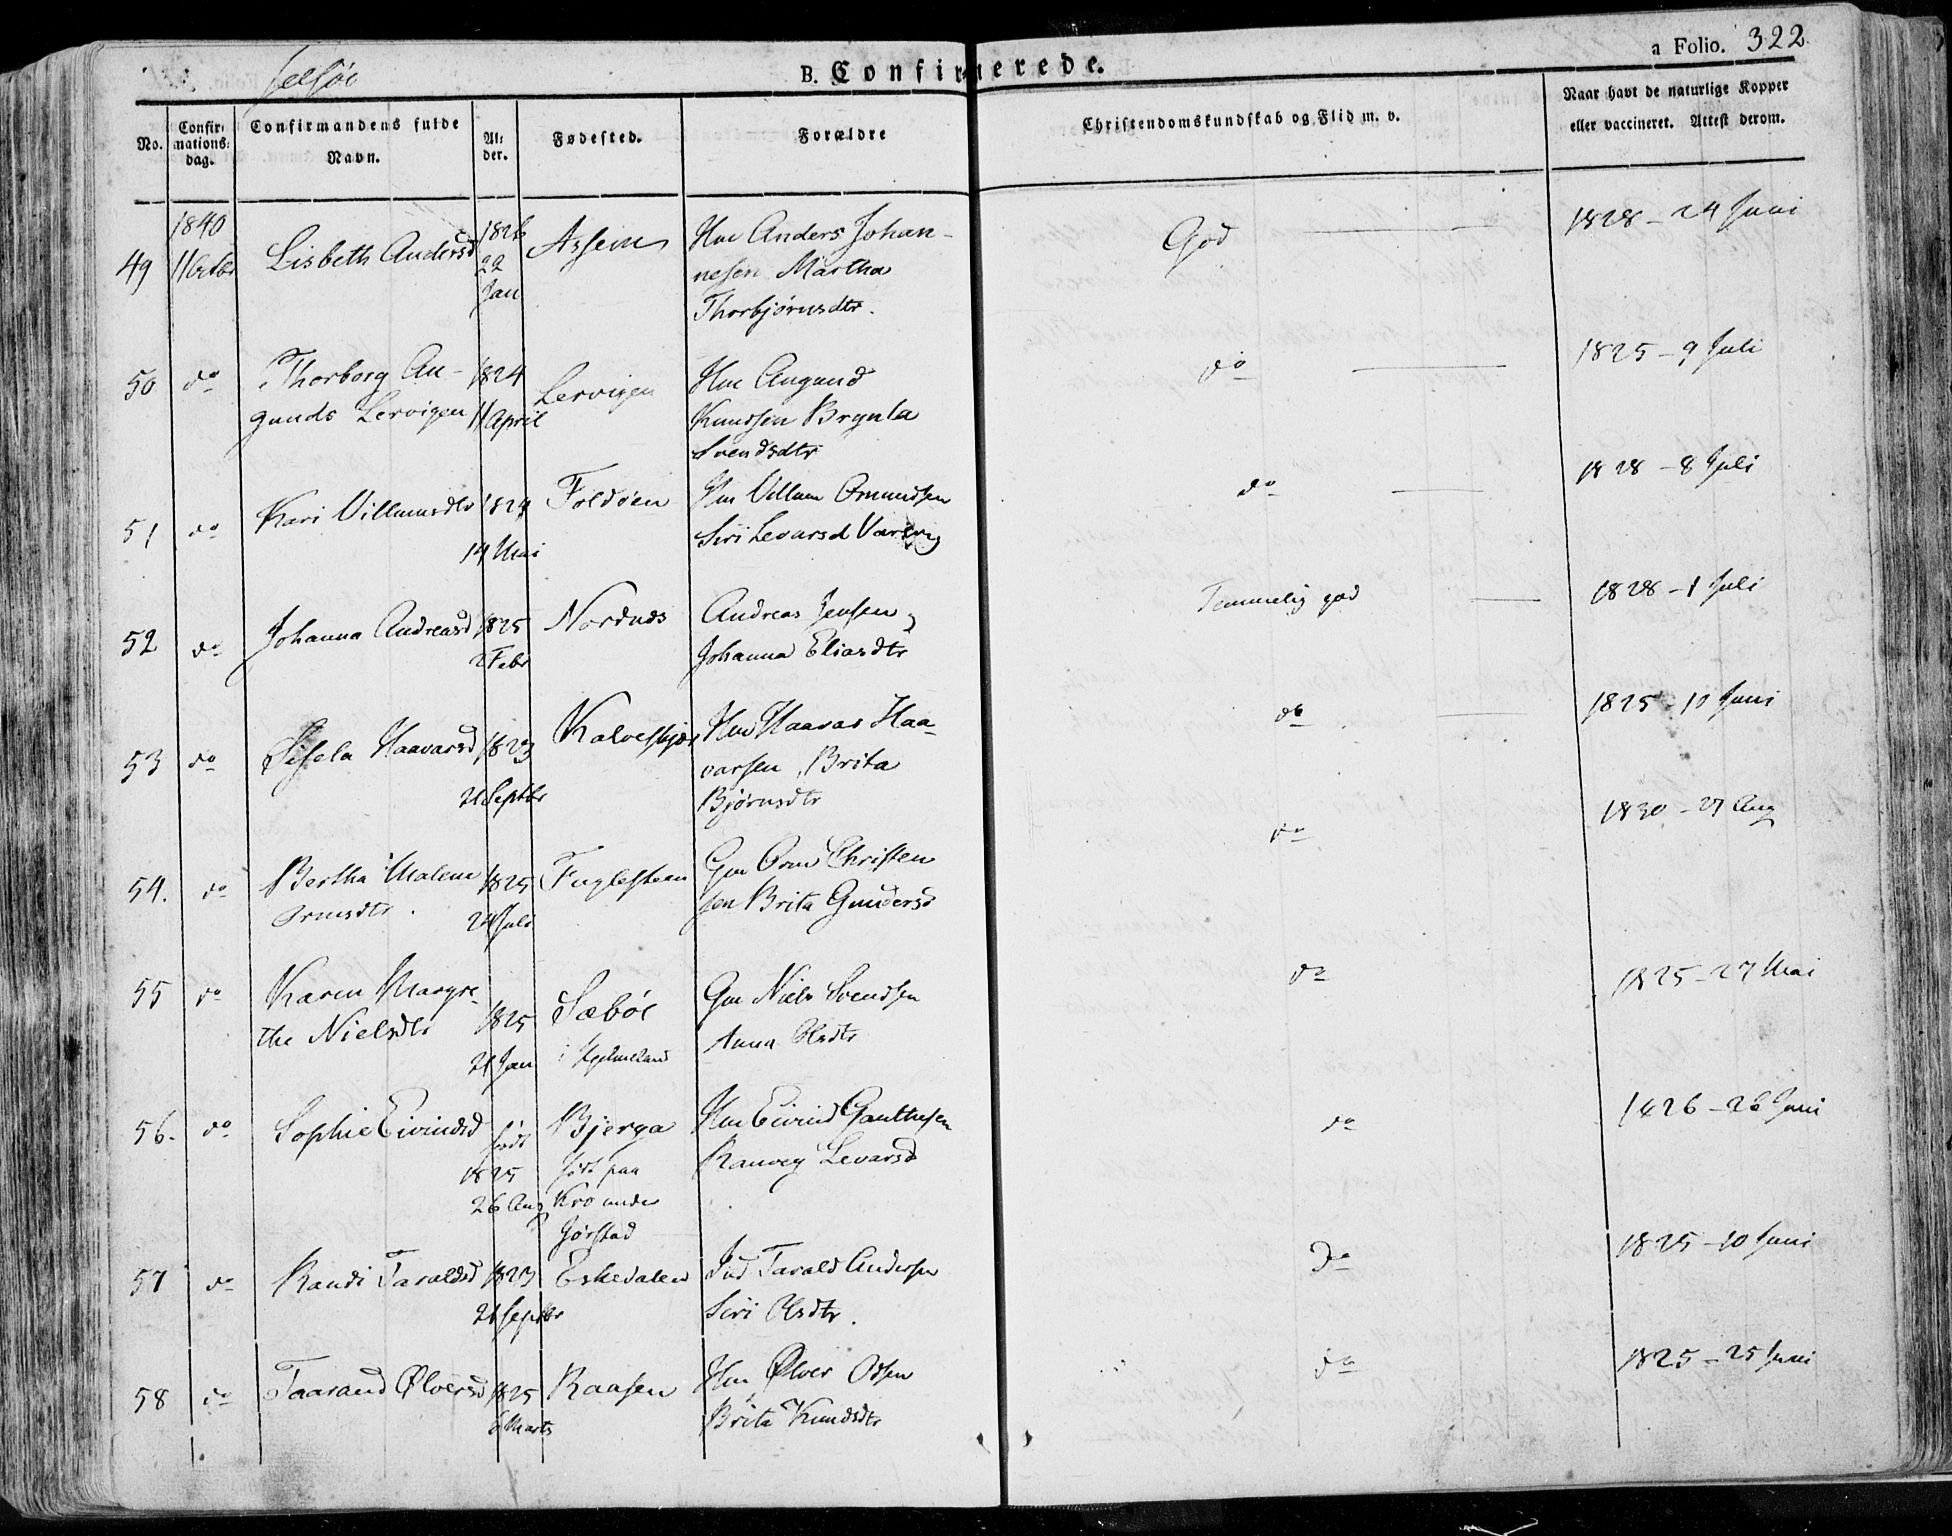 Jelsöe
B. Confirmerede.
a Folio. 322
No.
Confir-
mations-
dag.
Confirmandens fulde
Navn.
Al-
der.
Fødested.
Forældre
Christendomskundskab og Flid m. v.
Naar havt de naturlige Kopper
eller vaccineret. Attest derom.
49
1840
11 Octbr
Lisbeth Andersd
1826
22
Jan
Asseim
Hm Anders Johan-
nesen Martha
Thorbjørnsdtr.
God
1828 - 24 Juni
50
do
Thorborg Au-
gunds Lervigen
1824
11 April
Lervigen
Hm Augund
Knudsen Brynla
Svendsdtr
do
1825 - 9 Juli
51
do
Kari Villumsdtr
1824
14 Mai
Foldöen
Hm Villum Omundsen
Siri Levarsd
do
1828 - 8 Juli
52
do
Johanna Andreasd
1825
2 Febr
Nordnæs
Andreas Jensen,
Johanna Eliasdtr
Temmelig god
1828 - 1 Juli
53
do
Sisela Haavarsd
1823
21 Septbr
Hm Haavar Haa-
varsen, Brita
Bjørnsdtr
do
1825 - 10 Juni
54.
do
Bertha Malene
Ormsdtr.
1825
24 Juli
Fuglesteen
Gm Orm Christen
sen Brita Gundersd
do
1830 - 27 Aug
55
do
Karen Margre-
the Nielsdtr
1825
21 Jan
Sæböe
i Hjelmeland
Gm Niels Svendsen
Anna Olsdtr
do
1825 - 27 Mai
56.
do
Sophie Eivindsd
født
1825
26 Aug
Bjerga
født paa
Kro under
Jörstad
Hm Eivind Gauthesen
Ranveg Levarsd
do
1826 - 26 Juni
57
do
Randi Taraldsd
1823
21 Septbr
Eskedalen
Ind Tarald Andersen
Siri Olsdtr.
Do
1825 - 10 Juni
58
do
Taarand Ølversd
1825
6 Marts
Raasen
Hm Ølver Odsen
Brita Knudsdtr
do
1825 - 25 Juni